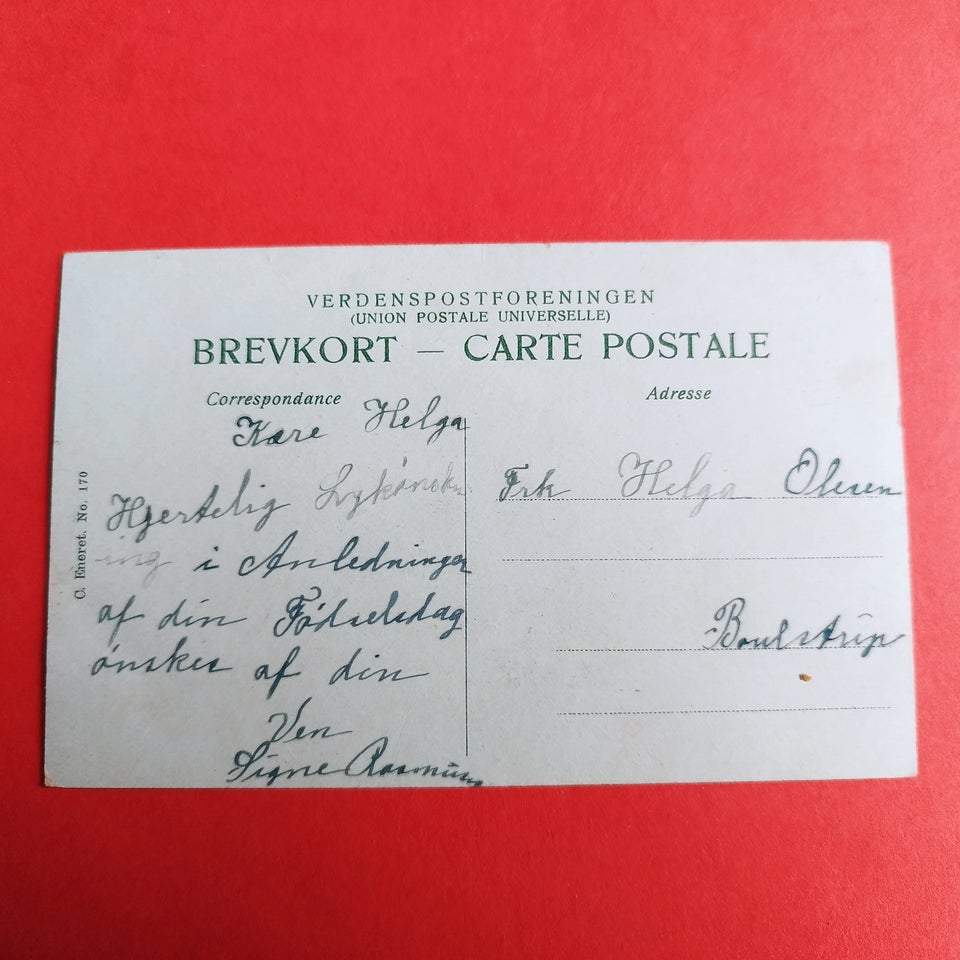 VERDENSPOSTFORENINGEN
(UNION POSTALE UNIVERSELLE)
BREVKORT — CARTE POSTALE
Correspondance
Kære Helga
Hjertelig Lykönsk
ing i Anledningen
af din Födselsdag
önskes af din
Ven
Signe Rasmussen
Adresse
Frk Helga Olesen
Boulstrup
C. Eneret. No. 170